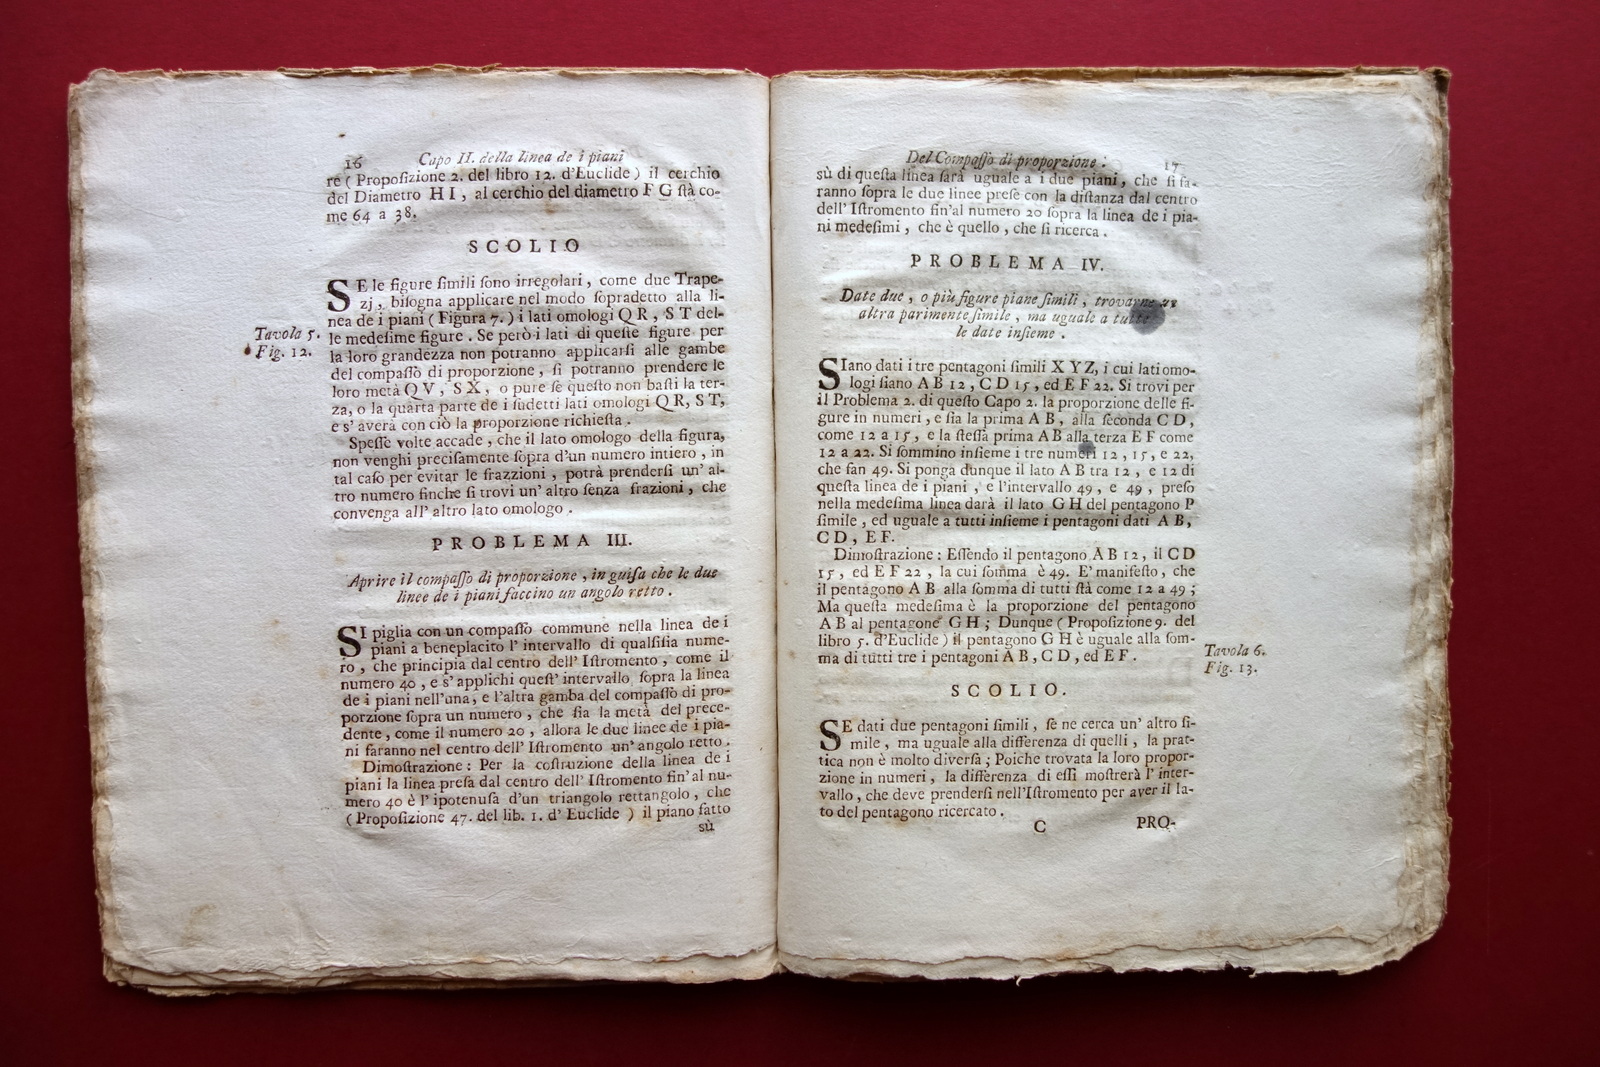 16 Capo II. della linea de i piani
re ( Propoſizione 2. del libro 12. d'Euclide ) il cerchio
del Diametro H I , al cerchio del diametro F G ſtà co-
me 64 a 38.
SCOLIO
SE le figure ſimili ſono irregolari , come due Trape-
zj , biſogna applicare nel modo ſopradetto alla li-
nea de i piani ( Figura 7. ) i lati omologi Q R , S T del-
le medeſime figure . Se però i lati di queſte figure per
la loro grandezza non potranno applicarſi alle gambe
del compaſſo di proporzione , ſi potranno prendere le
loro metà Q V , S X , o pure ſe queſto non baſti la ter-
za, o la quarta parte de i ſudetti lati omologi Q R, S T,
e s' averà con ciò la proporzione richieſta .
Tavola 5.
Fig. 12.
Speſſe volte accade , che il lato omologo della figura,
non venghi preciſamente ſopra d'un numero intiero , in
tal caſo per evitar le frazzioni , potrà prenderſi un' al-
tro numero finche ſi trovi un' altro ſenza frazioni , che
convenga all' altro lato omologo .
PROBLEMA III.
Aprire il compaſſo di proporzione , in guiſa che le due
linee de i piani faccino un angolo retto .
SI piglia con un compaſſo commune nella linea de i
piani a beneplacito l' intervallo di qualſiſia nume-
ro , che principia dal centro dell' Iſtromento , come il
numero 40 , e s' applichi queſt' intervallo ſopra la linea
de i piani nell'una, e l'altra gamba del compaſſo di pro-
porzione ſopra un numero , che ſia la metà del prece-
dente, come il numero 20 , allora le due linee de i pia-
ni faranno nel centro dell' Iſtromento un' angolo retto .
Dimoſtrazione : Per la coſtruzione della linea de i
piani la linea preſa dal centro dell' Iſtromento fin' al nu-
mero 40 è l' ipotenuſa d'un triangolo rettangolo , che
( Propoſizione 47. del lib. 1. d' Euclide ) il piano fatto
sù
Del Compaſſo di proporzione : 17
sù di queſta linea ſarà uguale a i due piani , che ſi fa-
ranno ſopra le due linee preſe con la diſtanza dal centro
dell' Iſtromento fin'al numero 20 ſopra la linea de i pia-
ni medeſimi , che è quello , che ſi ricerca .
PROBLEMA IV.
Date due , o più figure piane ſimili , trovarne un
altra parimente ſimile , ma uguale a tutte
le date inſieme .
SIano dati i tre pentagoni ſimili X Y Z, i cui lati omo-
logi ſiano A B 12 , C D 15 , ed E F 22. Si trovi per
il Problema 2. di queſto Capo 2. la proporzione delle fi-
gure in numeri , e ſia la prima A B , alla ſeconda C D ,
come 12 a 15 , e la ſteſſa prima A B alla terza E F come
12 a 22. Si ſommino inſieme i tre numeri 12 , 15 , e 22,
che fan 49. Si ponga dunque il lato A B tra 12 , e 12 di
queſta linea de i piani , e l'intervallo 49 , e 49 , preſo
nella medeſima linea darà il lato G H del pentagono P
ſimile , ed uguale a tutti inſieme i pentagoni dati A B,
C D , E F.
Dimoſtrazione : Eſſendo il pentagono A B 12 , il C D
15 , ed E F 22 , la cui ſomma è 49. E' manifeſto , che
il pentagono A B alla ſomma di tutti ſtà come 12 a 49 ;
Ma queſta medeſima è la proporzione del pentagono
A B al pentagone G H ; Dunque ( Propoſizione 9. del
libro 5. d'Euclide ) il pentagono G H è uguale alla ſom-
ma di tutti tre i pentagoni A B, C D , ed E F .
Tavola 6.
Fig. 13.
SCOLIO.
SE dati due pentagoni ſimili , ſe ne cerca un' altro ſi-
mile , ma uguale alla differenza di quelli , la prat-
tica non è molto diverſa ; Poiche trovata la loro propor-
zione in numeri , la differenza di eſſi moſtrerà l' inter-
vallo , che deve prenderſi nell'Iſtromento per aver il la-
to del pentagono ricercato .
C PRO-